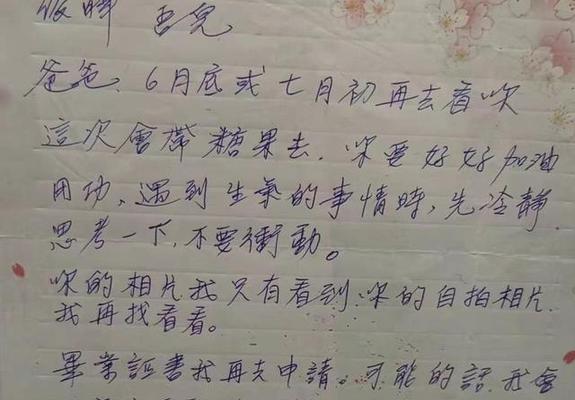 吾兒
爸爸、6月底或七月初再去看你
這次會帶糖果去.你要好好加油
用功、遇到生氣的事情時,先冷靜
思考一下,不要衝動。
你的相片我只有看到你的自拍相片.
我再找看看。
畢業証書我再去申請。可能的話,我會